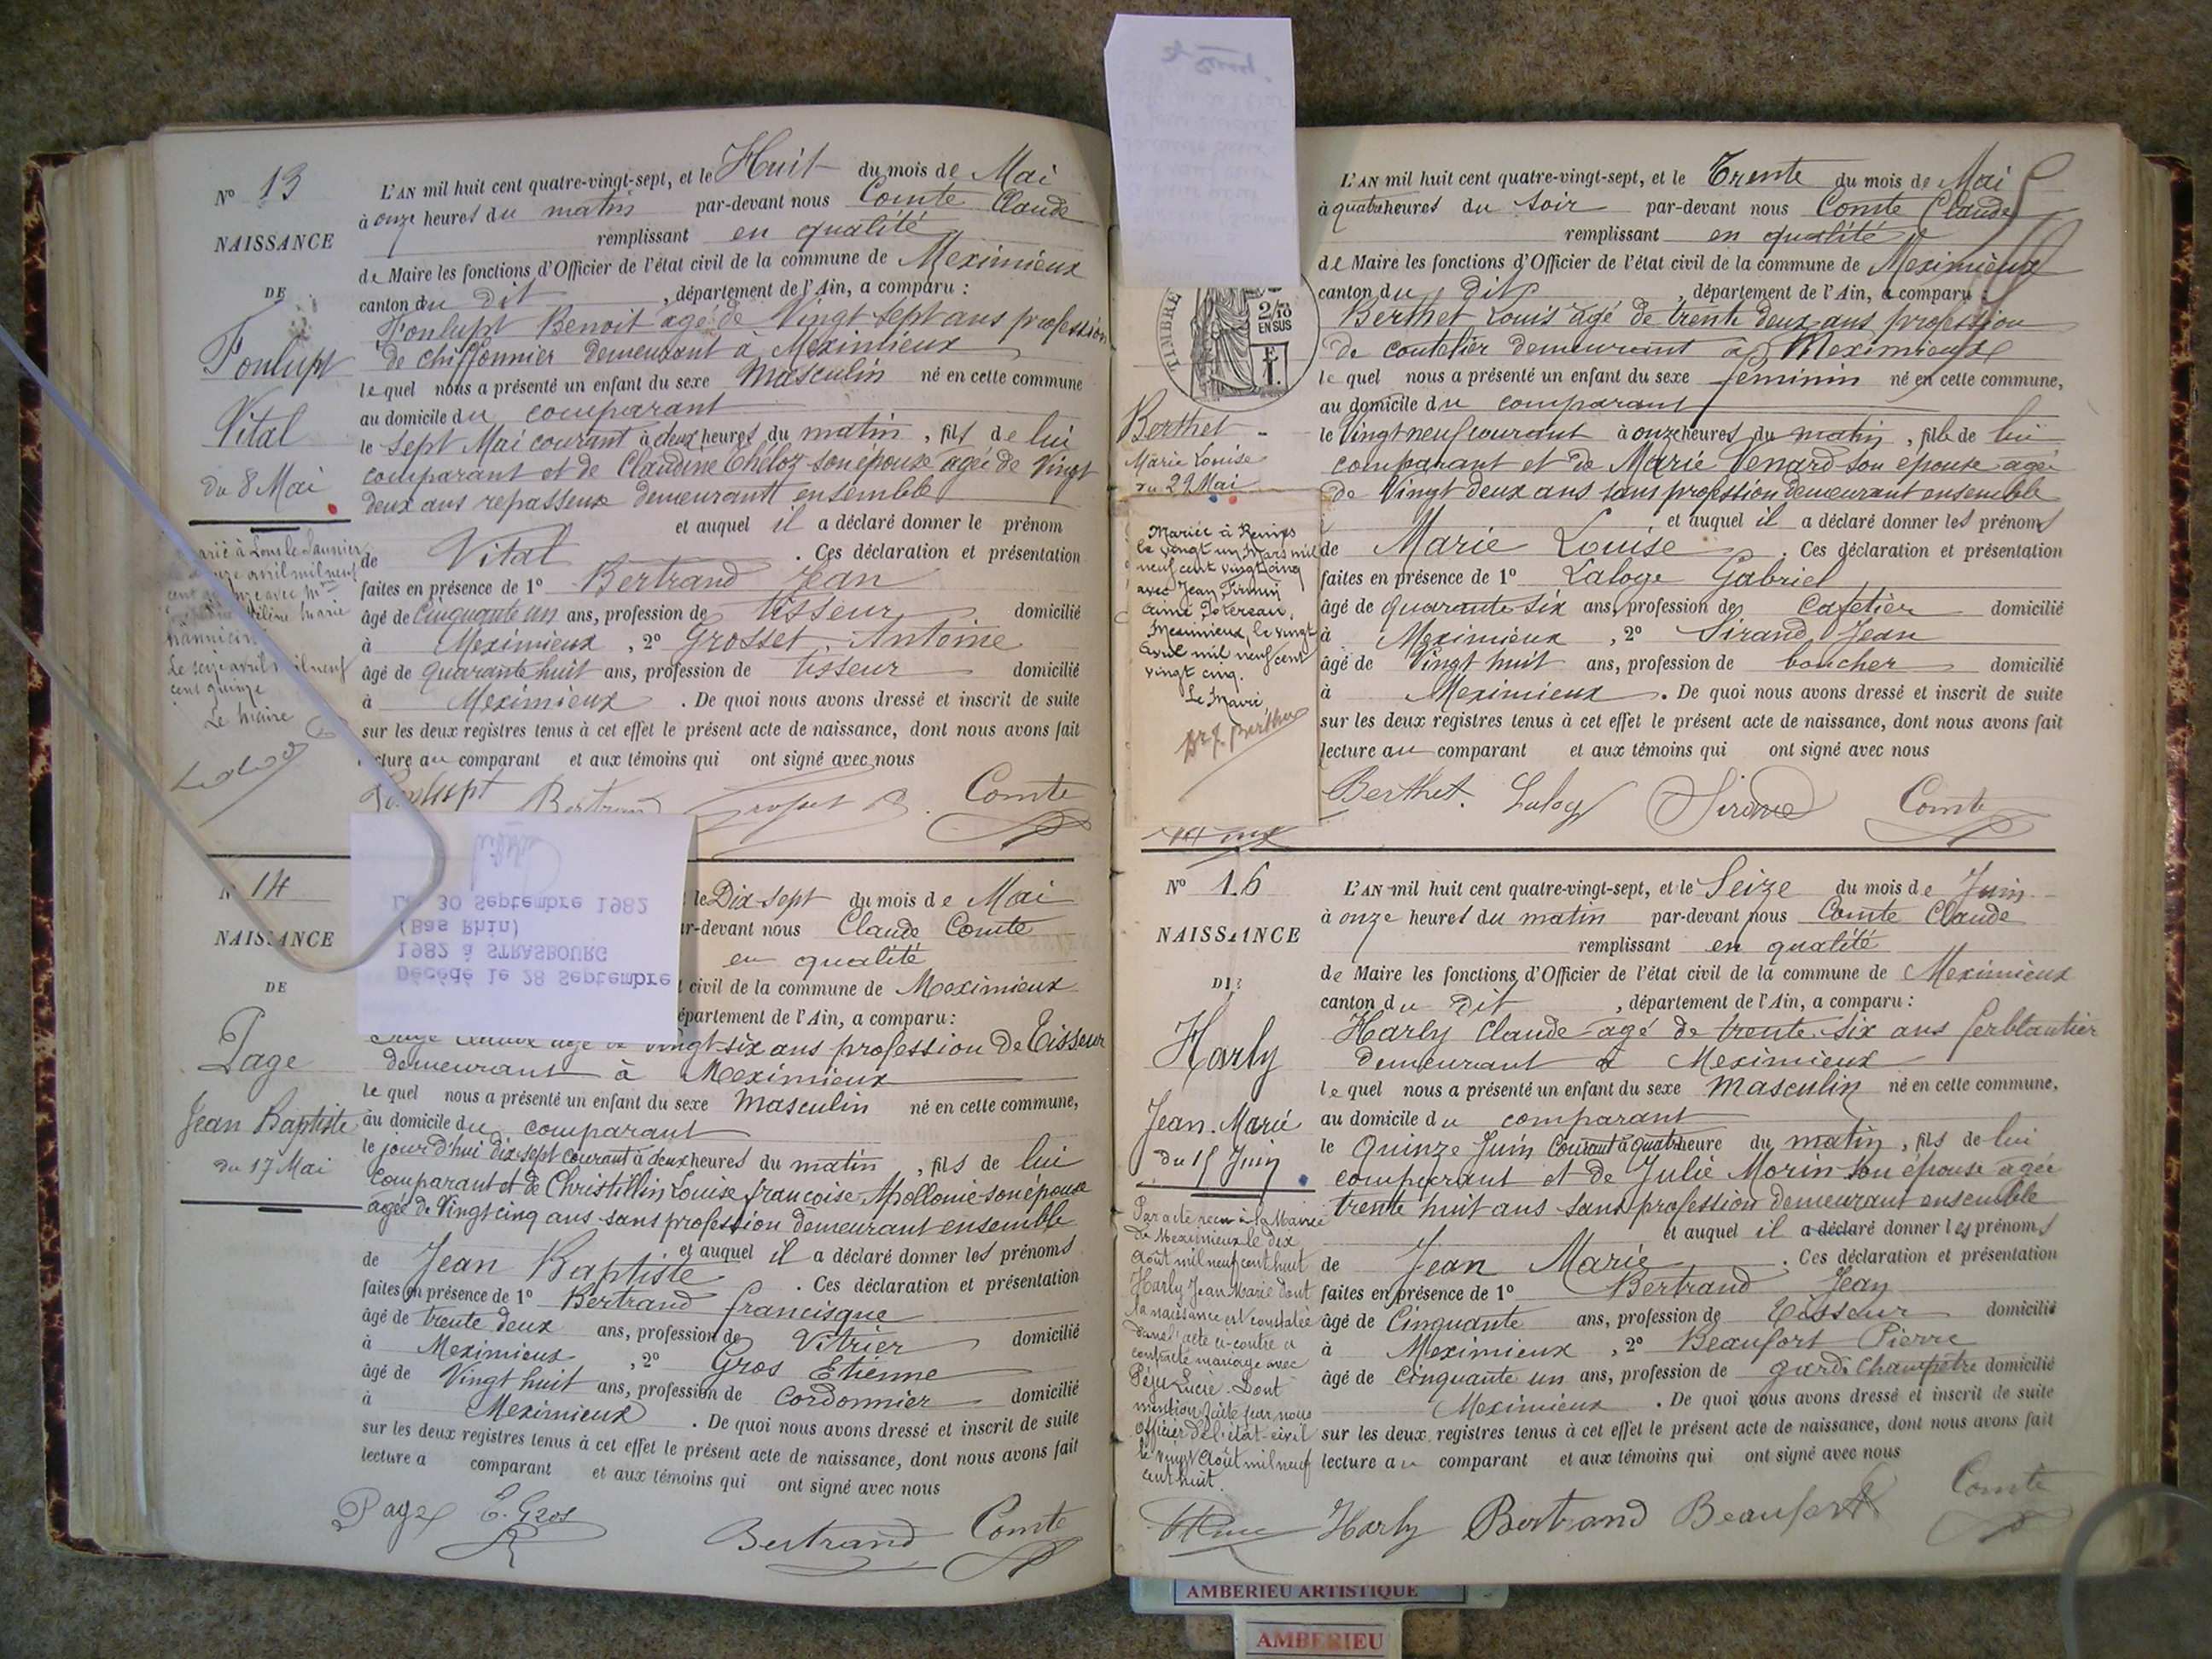 Nº 13
NAISSANCE
DE
Fonlupt
Vital
du 8 Mai
L'AN mil huit cent quatre-vingt-sept, et le Huit du mois de Mai
à onze heures du matin par-devant nous Comte Claude
remplissant en qualité
de Maire les fonctions d'Officier de l'état civil de la commune de Meximieux
canton du dit , département de l'Ain, a comparu :
Fonlupt Benoit agé de Vingt sept ans profession
de chiffonnier demeurant à Meximieux
lequel nous a présenté un enfant du sexe Masculin né en cette commune
au domicile du comparant
le sept Mai courant à deux heures du matin , fils de lui
comparant et de Claudine Théloz son épouse agée de Vingt
deux ans repasseuse demeurant ensemble
et auquel il a déclaré donner le prénom
de Vital . Ces déclaration et présentation
faites en présence de 1º Bertrand Jean
âgé de Cinquante un ans, profession de tisseur domicilié
à Meximieux , 2º Grosset Antoine
âgé de quarante huit ans, profession de tisseur domicilié
à Meximieux . De quoi nous avons dressé et inscrit de suite
sur les deux registres tenus à cet effet le présent acte de naissance, dont nous avons fait
lecture au comparant et aux témoins qui ont signé avec nous
Fonlupt Bertrand Comte
Marié à Lons le Saunier
avril mil neuf
Le seize avril mil neuf
cent quinze
Le Maire
Décédé le 28 Septembre
1982 à STRASBOURG
(Bas Rhin)
Le 30 Septembre 1982
Nº 14
NAISSANCE
DE
Page
Jean Baptiste
du 17 Mai
le Dix-sept du mois de Mai
par-devant nous Claude Comte
en qualité
civil de la commune de Meximieux
département de l'Ain, a comparu :
vingt six ans profession de Tisseur
demeurant à Meximieux
lequel nous a présenté un enfant du sexe Masculin né en cette commune,
au domicile du comparant
le jour d'hui dix-sept courant à deux heures du matin , fils de lui
Comparant et de Christillin Louise françoise Apollonie son épouse
agée de Vingt cinq ans sans profession demeurant ensemble
et auquel il a déclaré donner les prénoms
de Jean Baptiste . Ces déclaration et présentation
faites en présence de 1º Bertrand francisque
âgé de trente deux ans, profession de Vitrier domicilié
à Meximieux , 2º Gros Etienne
âgé de Vingt huit ans, profession de Cordonnier domicilié
à Meximieux . De quoi nous avons dressé et inscrit de suite
sur les deux registres tenus à cet effet le présent acte de naissance, dont nous avons fait
lecture a comparant et aux témoins qui ont signé avec nous
Page E. Gros Bertrand Comte
TIMBRE
2/10
EN SUS
Berthet
Marie Louise
du 29 Mai
Mariée à Reims
le vingt un Mars mil
neuf cent vingt cinq
avec Jean Firmin
Aimé Potereau.
Meximieux, le vingt
Avril mil neuf cent
vingt cinq.
Le Maire
L'AN mil huit cent quatre-vingt-sept, et le Trente du mois de Mai
à quatre heures du soir par-devant nous Comte Claude
remplissant en qualité
de Maire les fonctions d'Officier de l'état civil de la commune de Meximieux
canton du dit , département de l'Ain, a comparu :
Berthet Louis agé de trente deux ans profession
de coutelier demeurant à Meximieux
lequel nous a présenté un enfant du sexe feminin né en cette commune,
au domicile du comparant
le Vingt neuf courant à onze heures du matin , fille de lui
comparant et de Marie Venard son épouse agée
de Vingt deux ans sans profession demeurant ensemble
et auquel il a déclaré donner les prénoms
de Marie Louise . Ces déclaration et présentation
faites en présence de 1º Laloge Gabriel
âgé de quarante six ans, profession de Cafetier domicilié
à Meximieux , 2º Sirand Jean
âgé de Vingt huit ans, profession de boucher domicilié
à Meximieux . De quoi nous avons dressé et inscrit de suite
sur les deux registres tenus à cet effet le présent acte de naissance, dont nous avons fait
lecture au comparant et aux témoins qui ont signé avec nous
Berthet. Laloge Sirand Comte
Nº 16
NAISSANCE
DE
Harly
Jean-Marie
du 15 Juin
Par acte reçu à la Mairie
de Meximieux le dix
Août mil neuf cent huit
Harly Jean Marie dont
la naissance est constatée
dans l'acte ci-contre a
contracté mariage avec
Péju Lucie. Dont
mention faite par nous
Officier de l'état-civil
le vingt Août mil neuf
cent huit.
L'AN mil huit cent quatre-vingt-sept, et le Seize du mois de Juin
à onze heures du matin par-devant nous Comte Claude
remplissant en qualité
de Maire les fonctions d'Officier de l'état civil de la commune de Meximieux
canton du dit , département de l'Ain, a comparu :
Harly Claude agé de trente six ans ferblantier
demeurant à Meximieux
lequel nous a présenté un enfant du sexe Masculin né en cette commune,
au domicile du comparant
le Quinze Juin Courant à quatre heure du matin , fils de lui
comparant et de Julie Morin son épouse agée
trente huit ans sans profession demeurant ensemble
et auquel il a déclaré donner les prénoms
de Jean Marie . Ces déclaration et présentation
faites en présence de 1º Bertrand Jean
âgé de Cinquante ans, profession de Tisseur domicilié
à Meximieux , 2º Beaufort Pierre
âgé de Cinquante un ans, profession de garde champêtre domicilié
Meximieux . De quoi nous avons dressé et inscrit de suite
sur les deux registres tenus à cet effet le présent acte de naissance, dont nous avons fait
lecture au comparant et aux témoins qui ont signé avec nous
Harly Bertrand Beaufort Comte
AMBERIEU ARTISTIQUE
AMBERIEU